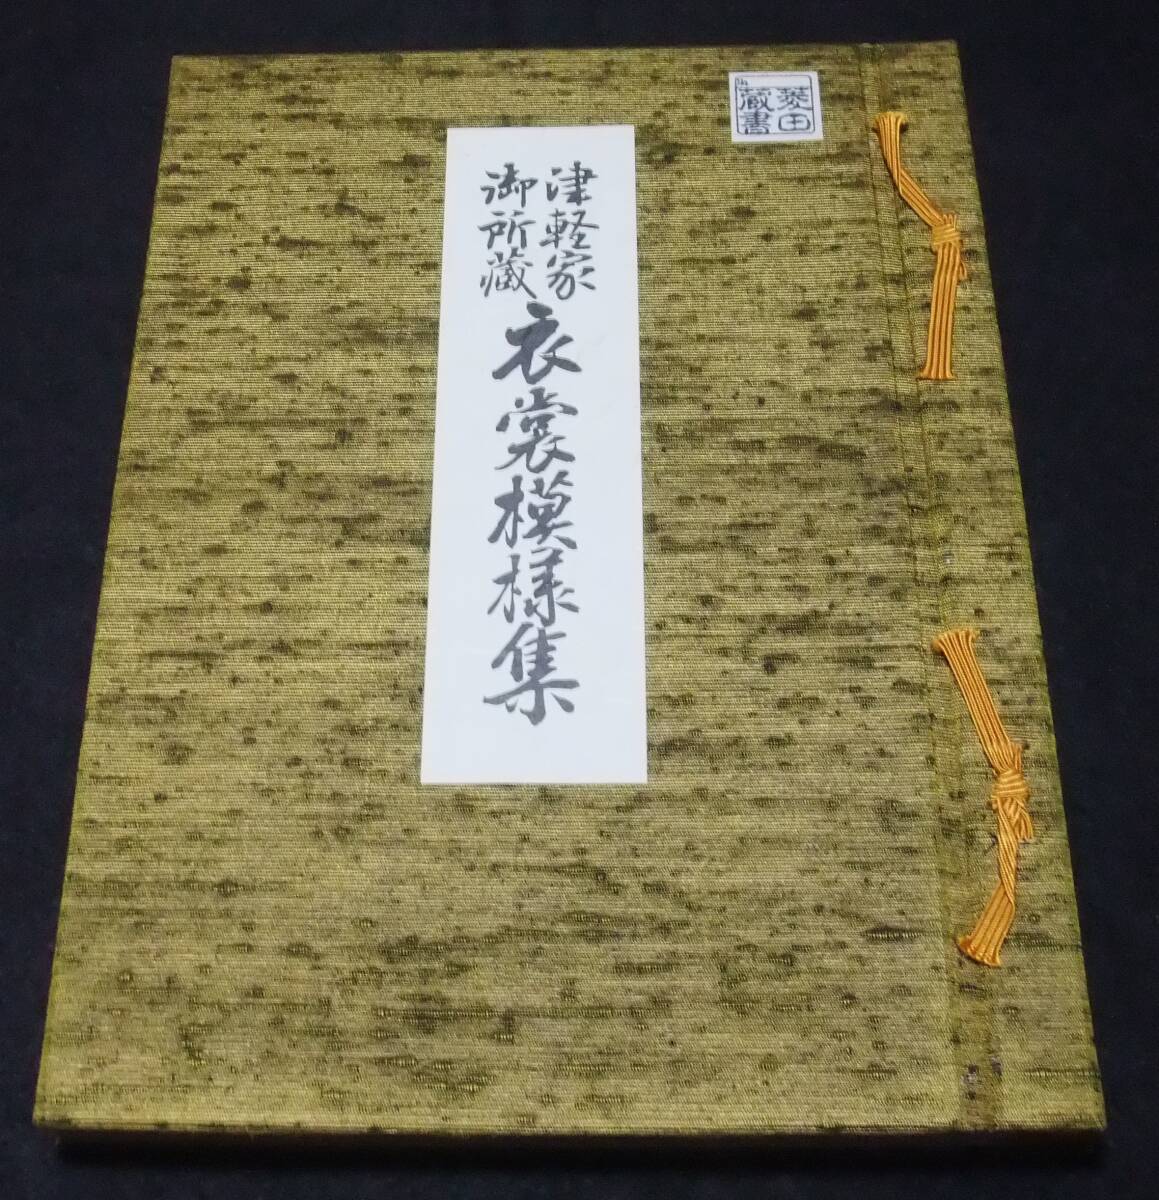 津軽家
御所蔵
衣裳模様集
菱田
蔵書